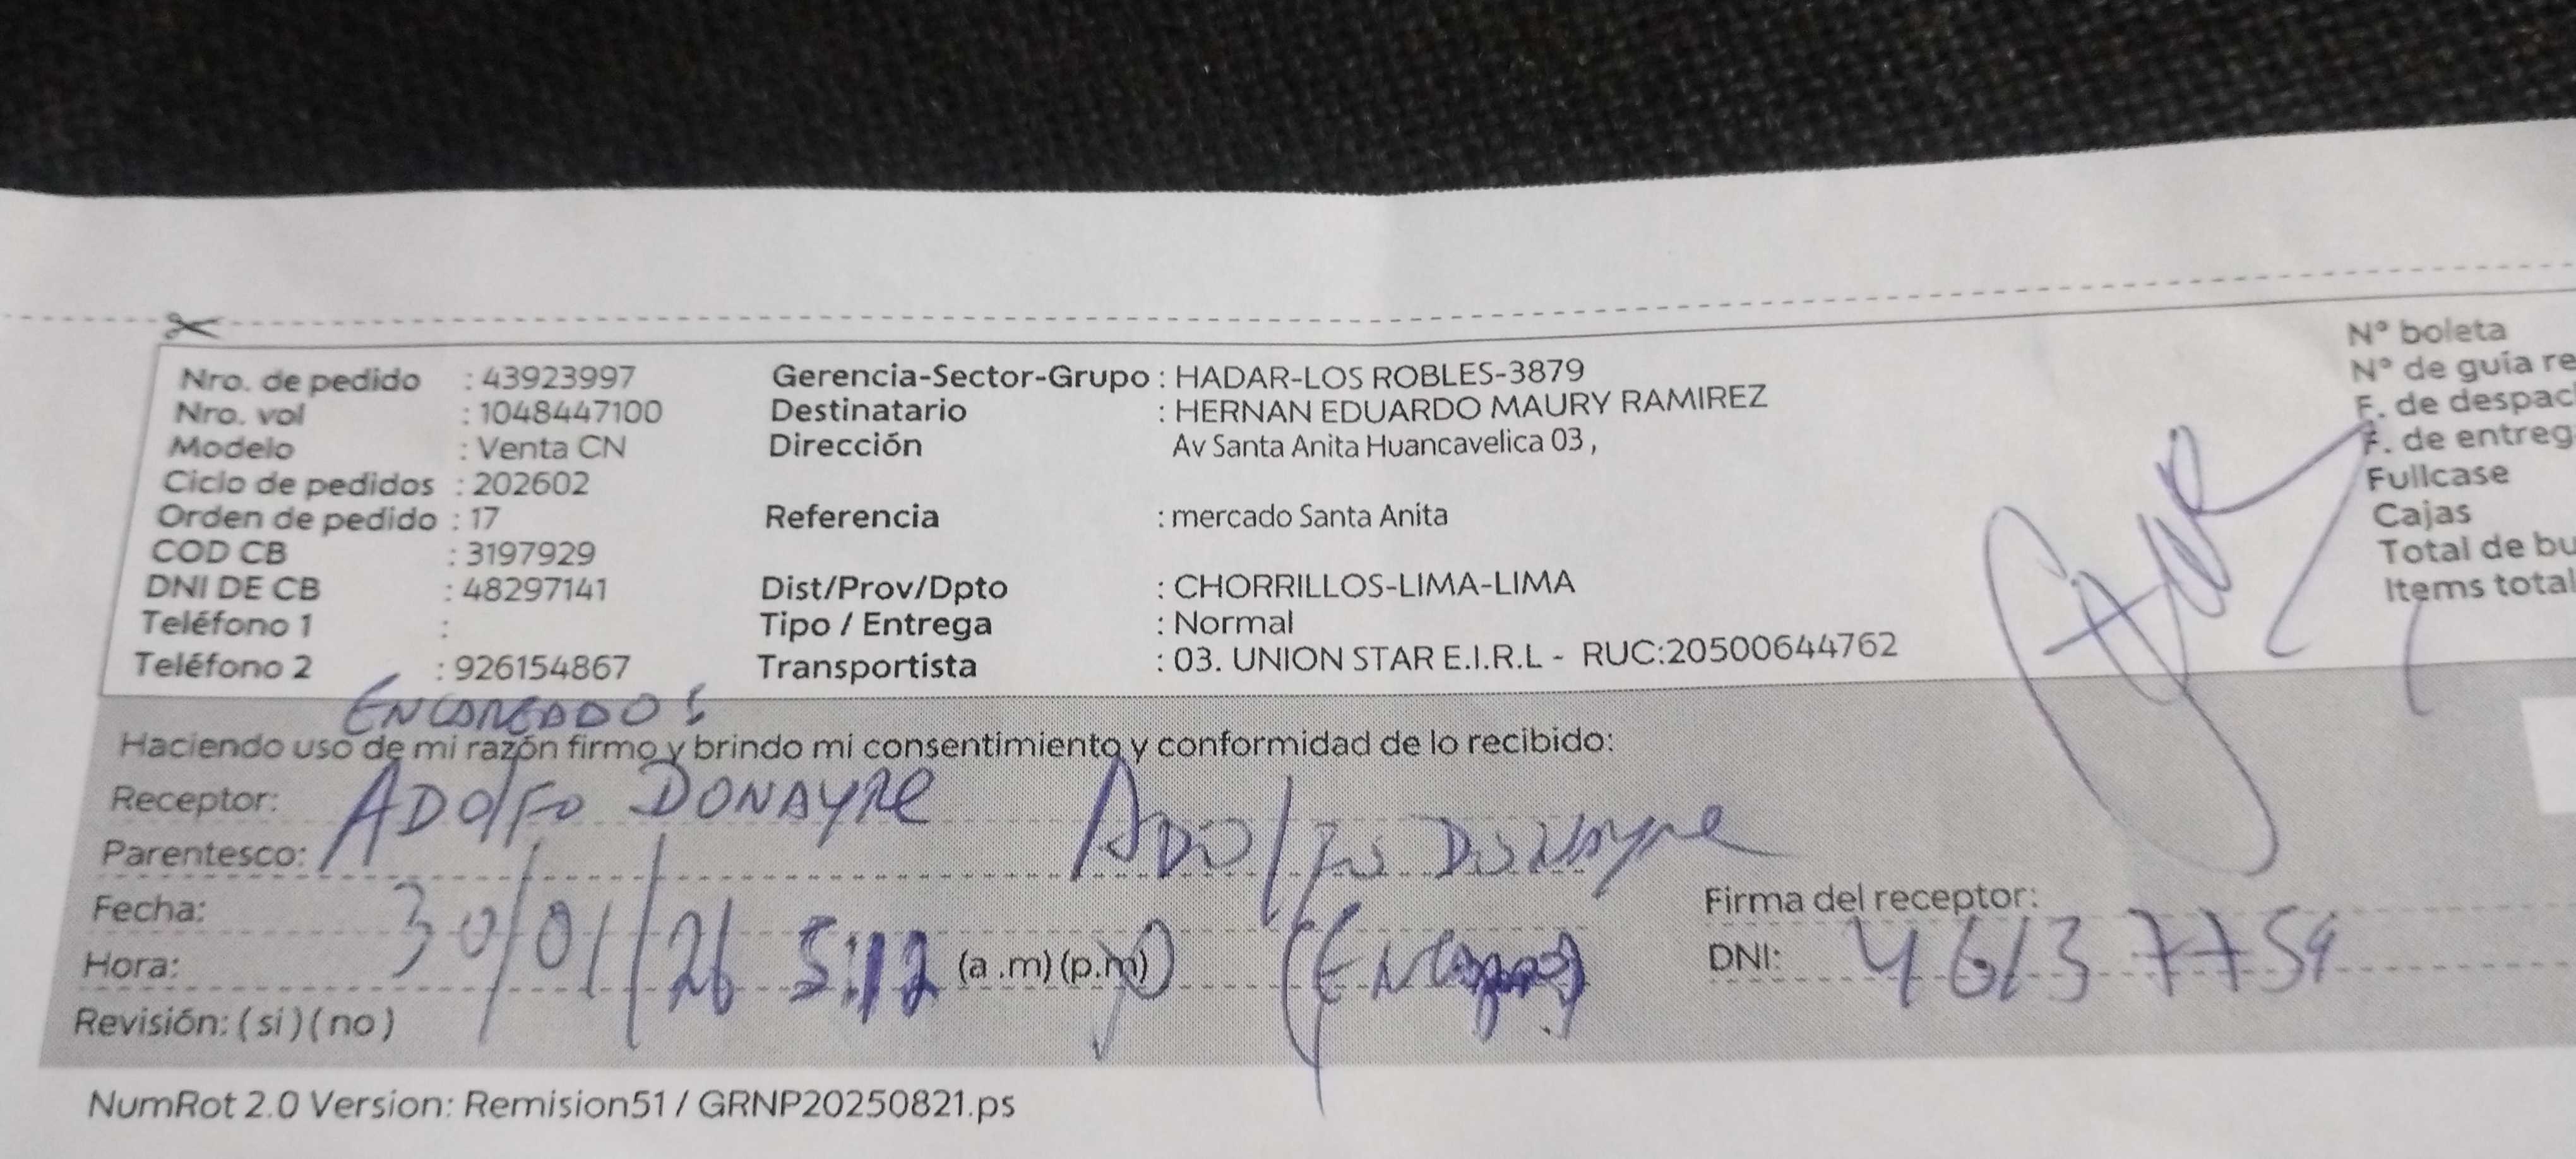 Nro. de pedido : 43923997 Gerencia-Sector-Grupo : HADAR-LOS ROBLES-3879 N° boleta
Nro. vol : 1048447100 Destinatario : HERNAN EDUARDO MAURY RAMIREZ N° de guía re
Modelo : Venta CN Dirección Av Santa Anita Huancavelica 03 , F. de despac
Ciclo de pedidos : 202602 F. de entreg
Orden de pedido : 17 Referencia : mercado Santa Anita Fullcase
COD CB : 3197929 Cajas
DNI DE CB : 48297141 Dist/Prov/Dpto : CHORRILLOS-LIMA-LIMA Total de bu
Teléfono 1 : Tipo / Entrega : Normal Items total
Teléfono 2 : 926154867 Transportista : 03. UNION STAR E.I.R.L - RUC:20500644762
Haciendo uso de mi razón firmo y brindo mi consentimiento y conformidad de lo recibido:
Receptor: ADOLFO DONAYRE ADOLFO DONAYRE
Parentesco:
Fecha: 30/01/26 Firma del receptor:
Hora: 5:12 (a .m) (p.m) DNI: 46137754
Revisión: ( si ) ( no )
NumRot 2.0 Version: Remision51 / GRNP20250821.ps